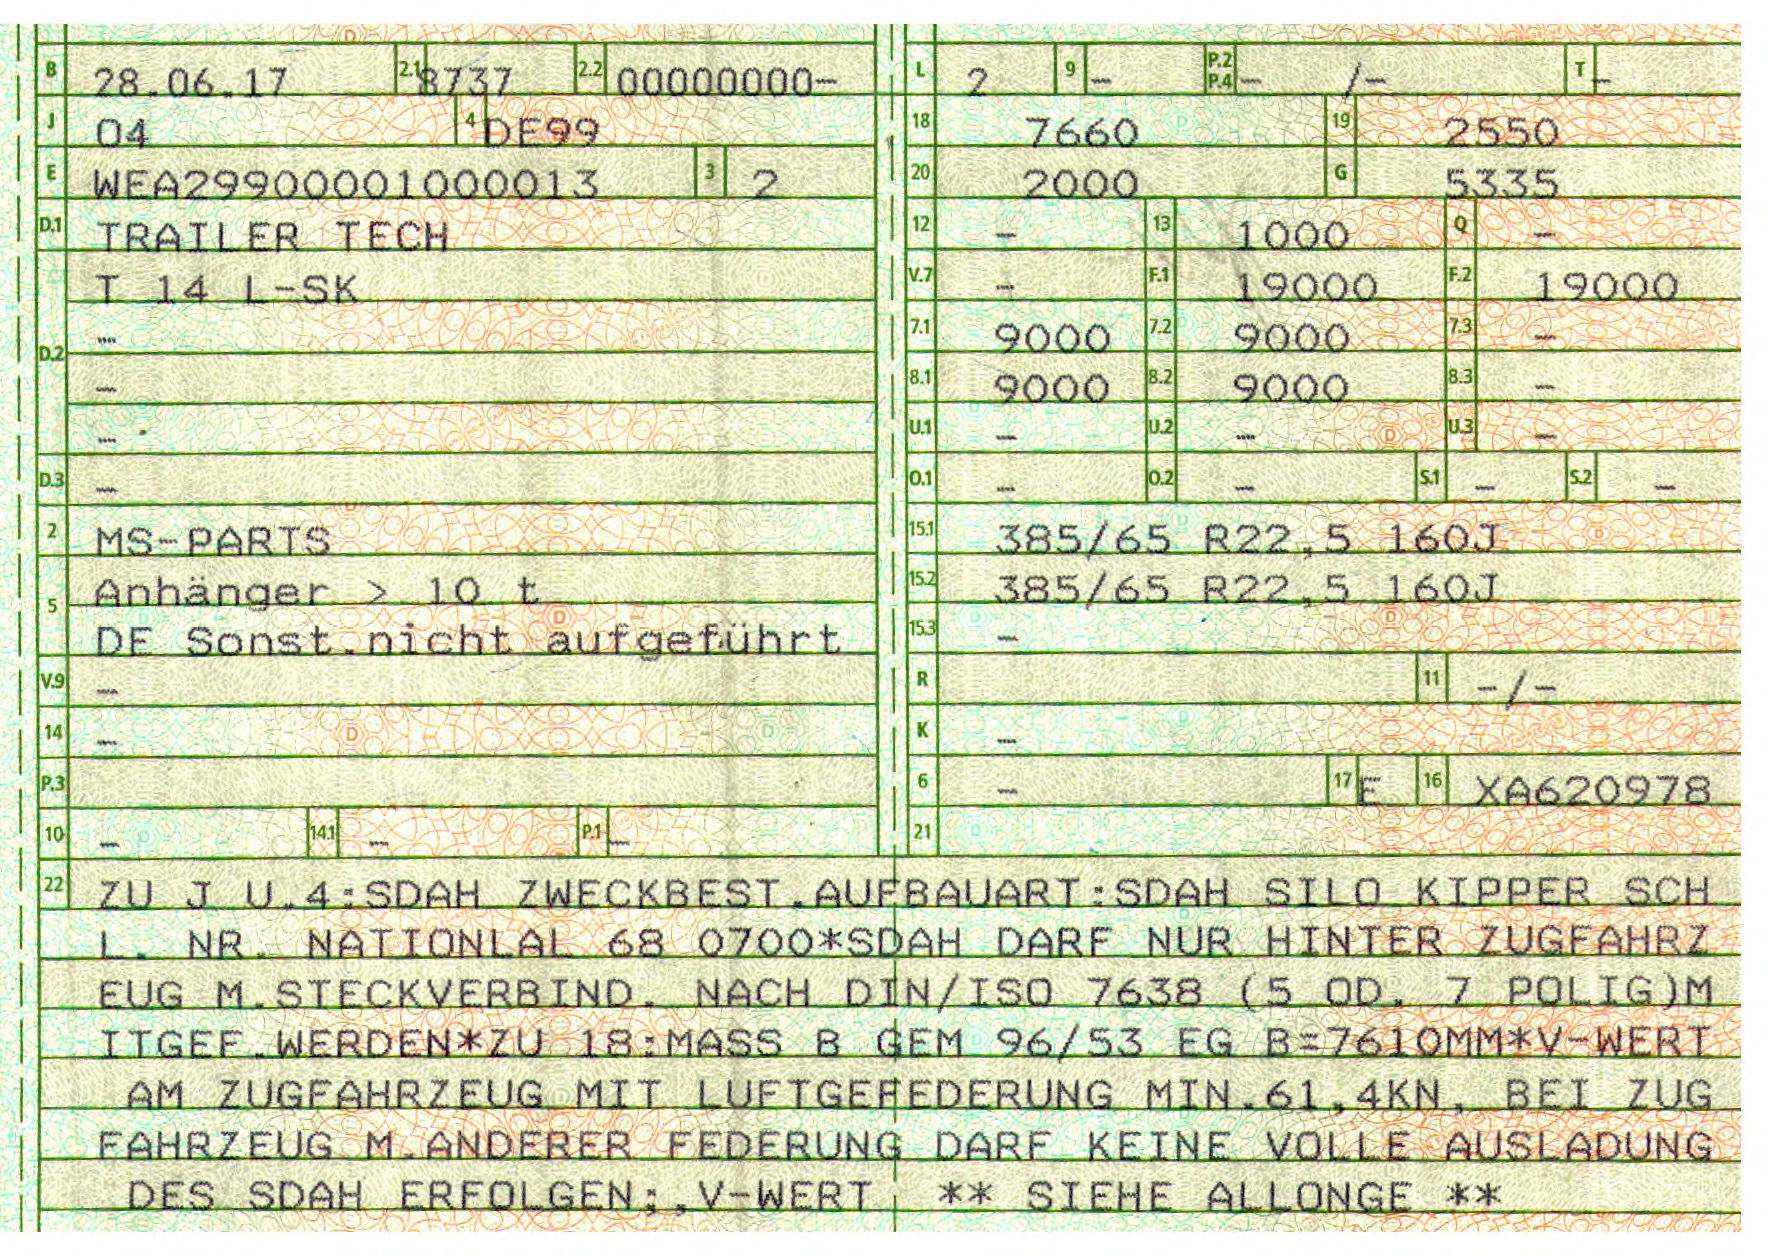 B 28.06.17 2.1 8737 2.2 00000000-
J 04 4 DE99
E WEA29900001000013 3 2
D.1 TRAILER TECH
T 14 L-SK
–
D.2
–
–
D.3 –
2 MS-PARTS
Anhänger > 10 t
5
DE Sonst.nicht aufgeführt
V.9 –
14 –
P.3
10 – 14.1 – P.1 –
L 2 9 – P.2 P.4 – /– T –
18 7660 19 2550
20 2000 G 5335
12 – 13 1000 Q –
V.7 – F.1 19000 F.2 19000
7.1 9000 7.2 9000 7.3 –
8.1 9000 8.2 9000 8.3 –
U.1 – U.2 – U.3 –
O.1 – O.2 – S.1 – S.2 –
15.1 385/65 R22,5 160J
15.2 385/65 R22,5 160J
15.3 –
R 11 –/–
K –
6 – 17 E 16 XA620978
21
22 ZU J U.4:SDAH ZWECKBEST.AUFBAUART:SDAH SILO KIPPER SCH
L. NR. NATIONLAL 68 0700*SDAH DARF NUR HINTER ZUGFAHRZ
EUG M.STECKVERBIND. NACH DIN/ISO 7638 (5 OD. 7 POLIG)M
ITGEF.WERDEN*ZU 18:MASS B GEM 96/53 EG B=7610MM*V-WERT
AM ZUGFAHRZEUG MIT LUFTGEFEDERUNG MIN.61,4KN, BEI ZUG
FAHRZEUG M.ANDERER FEDERUNG DARF KEINE VOLLE AUSLADUNG
DES SDAH ERFOLGEN;,V-WERT ** SIEHE ALLONGE **